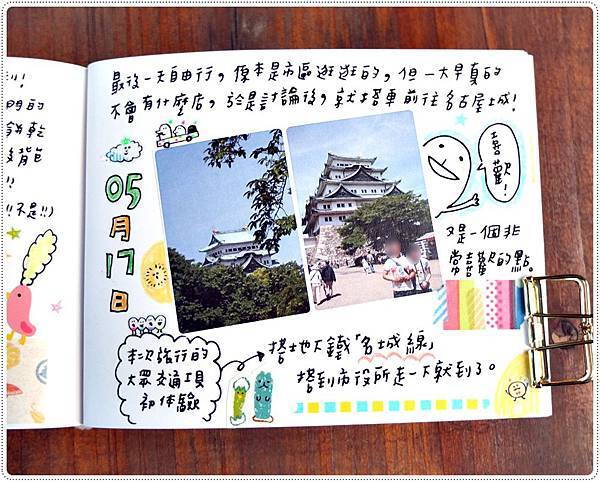 !
門的
餅乾
背包
!!
(!!不是!!)
最後一天自由行，原本是市區逛逛的，但一大早真的
不會有什麼店，於是討論後，就搭車前往名古屋城!
05
月
17
日
喜
歡
!
又是一個非
常喜歡的點。
本次旅行的
大眾交通工具
初体驗
搭地下鐵「名城線」
搭到市役所走一下就到了。